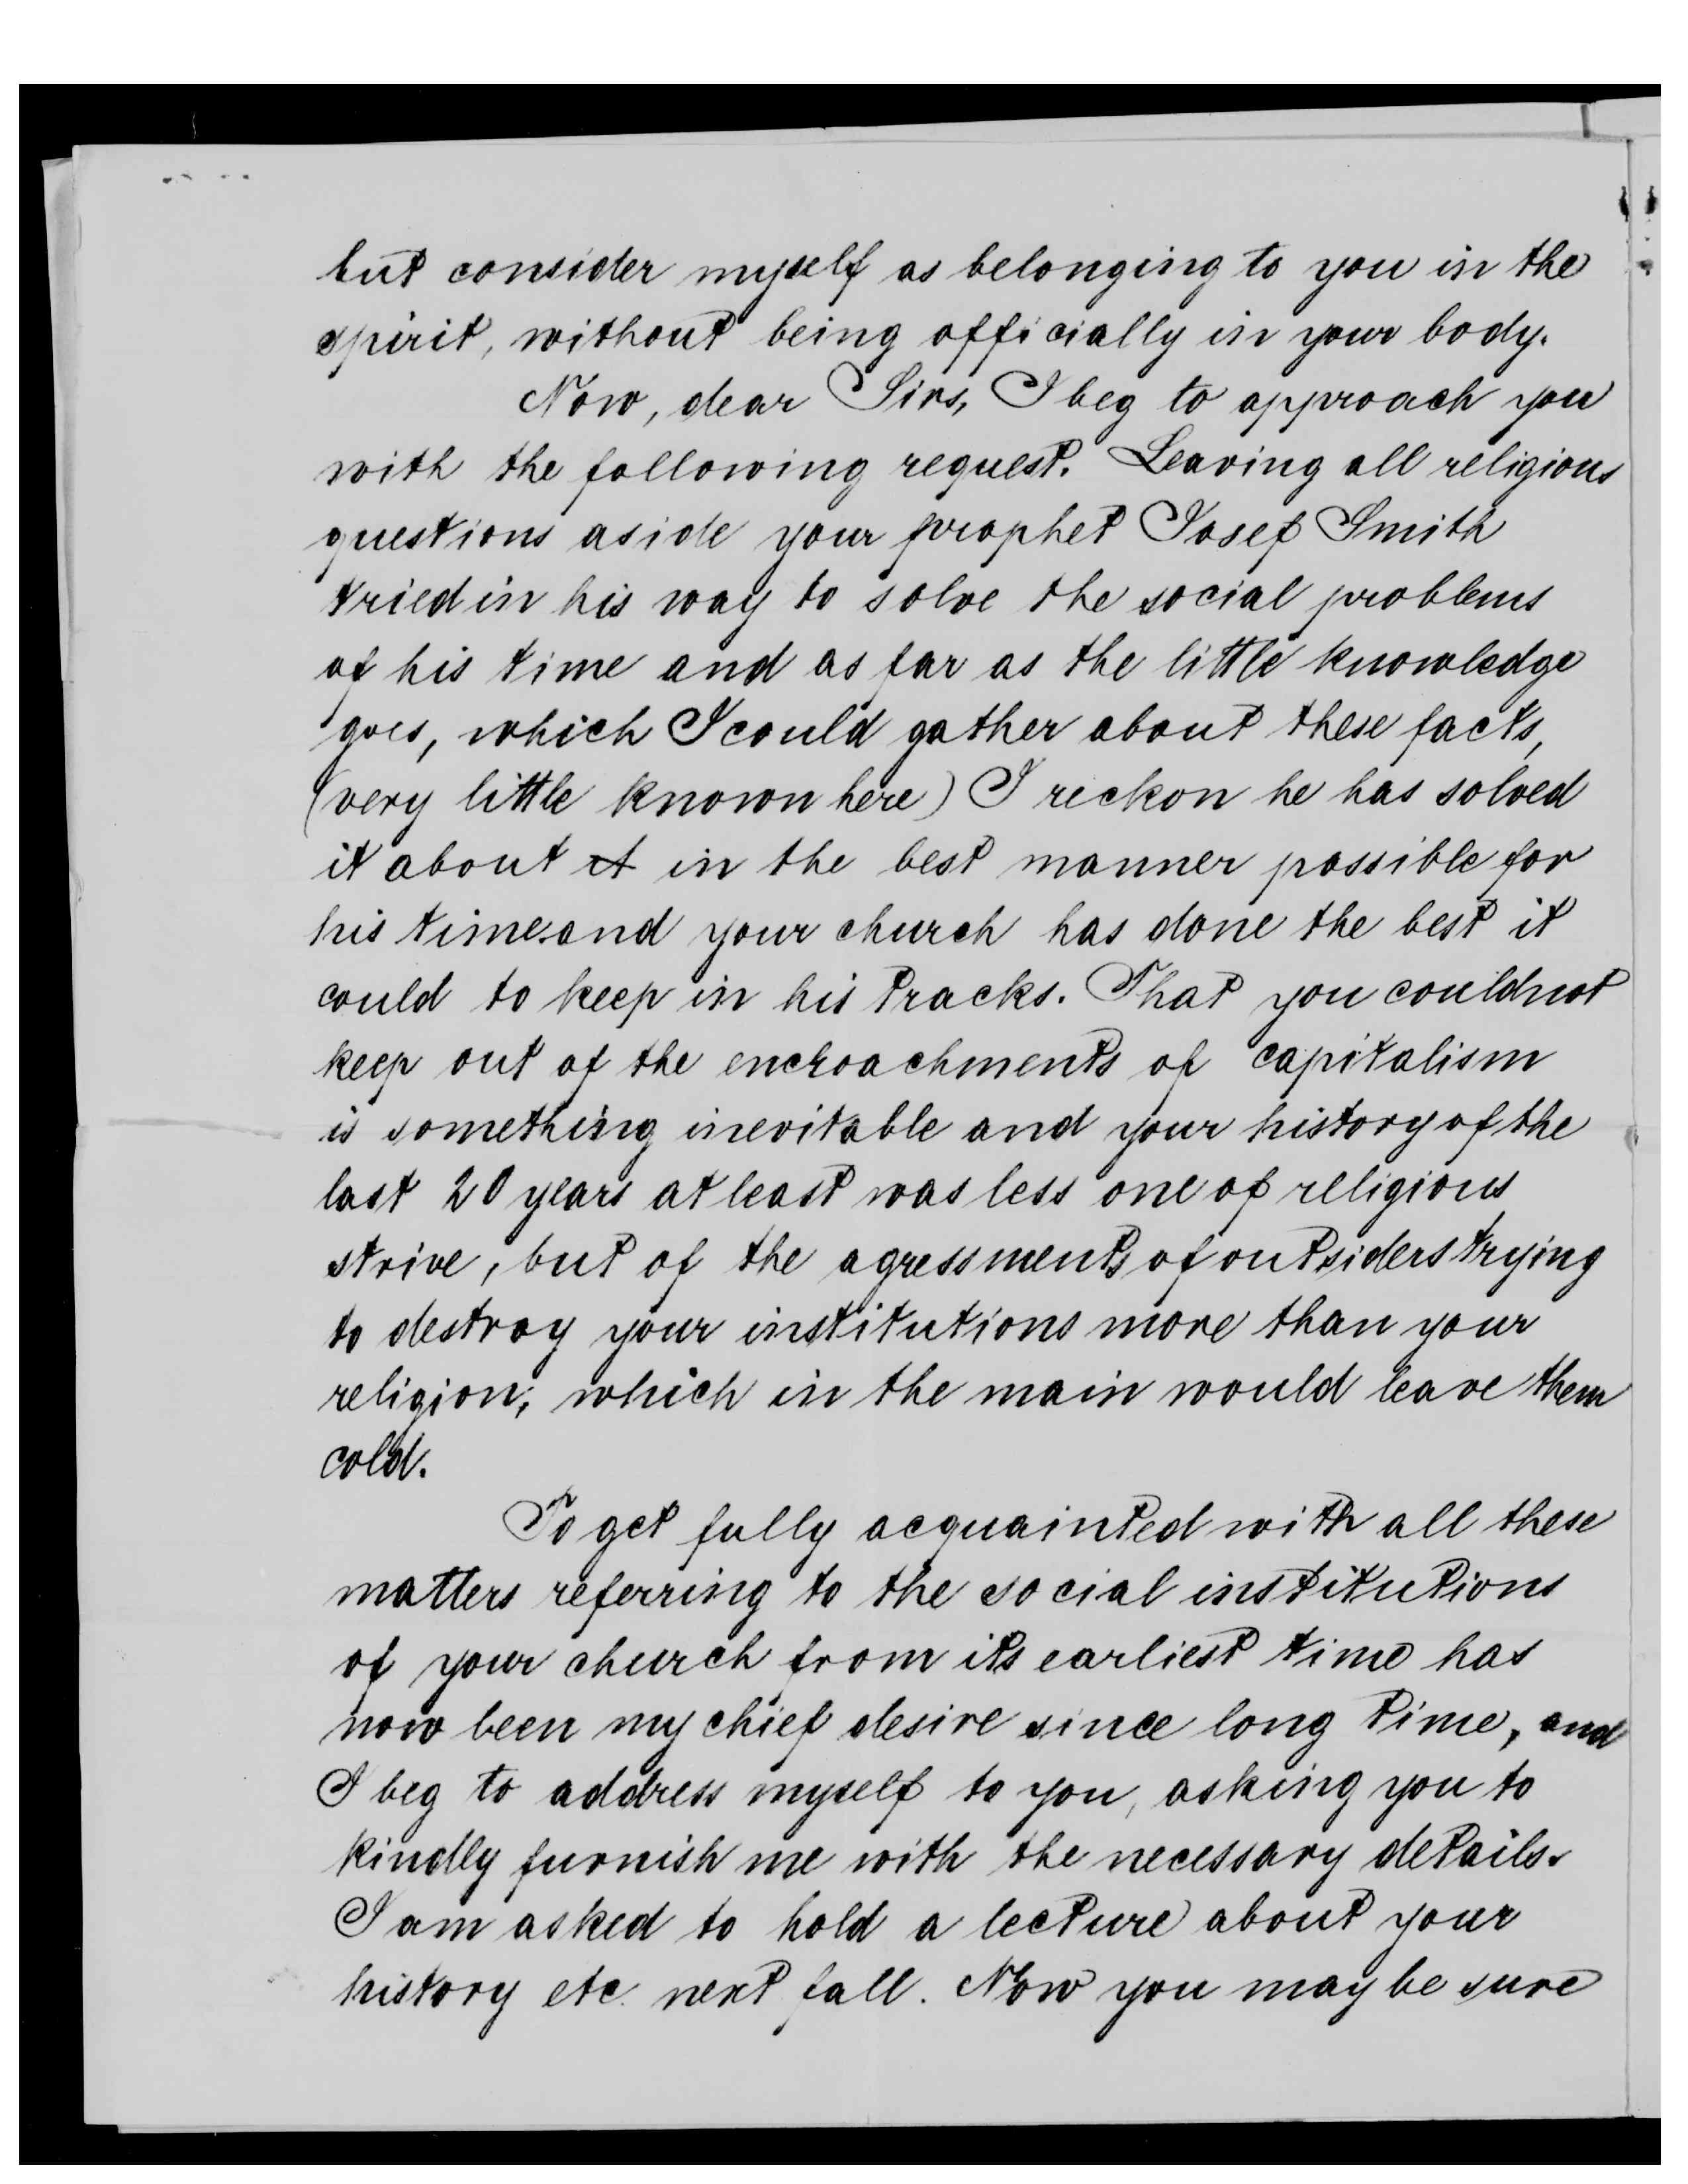 but consider myself as belonging to you in the
spirit, without being officially in your body.
Now, dear Sirs, I beg to approach you
with the following request. Leaving all religious
questions aside your prophet Josef Smith
tried in his way to solve the social problems
of his time and as far as the little knowledge
goes, which I could gather about these facts,
(very little known here) I reckon he has solved
it about it in the best manner possible for
his time and your church has done the best it
could to keep in his tracks. That you could not
keep out of the encroachments of capitalism
is something inevitable and your history of the
last 20 years at least was less one of religious
strive, but of the agressments of outsiders trying
to destroy your institutions more than your
religion, which in the main would leave them
cold.
To get fully acquainted with all these
matters referring to the social institutions
of your church from its earliest time has
now been my chief desire since long time, and
I beg to address myself to you, asking you to
kindly furnish me with the necessary details.
I am asked to hold a lecture about your
history etc. next fall. Now you may be sure